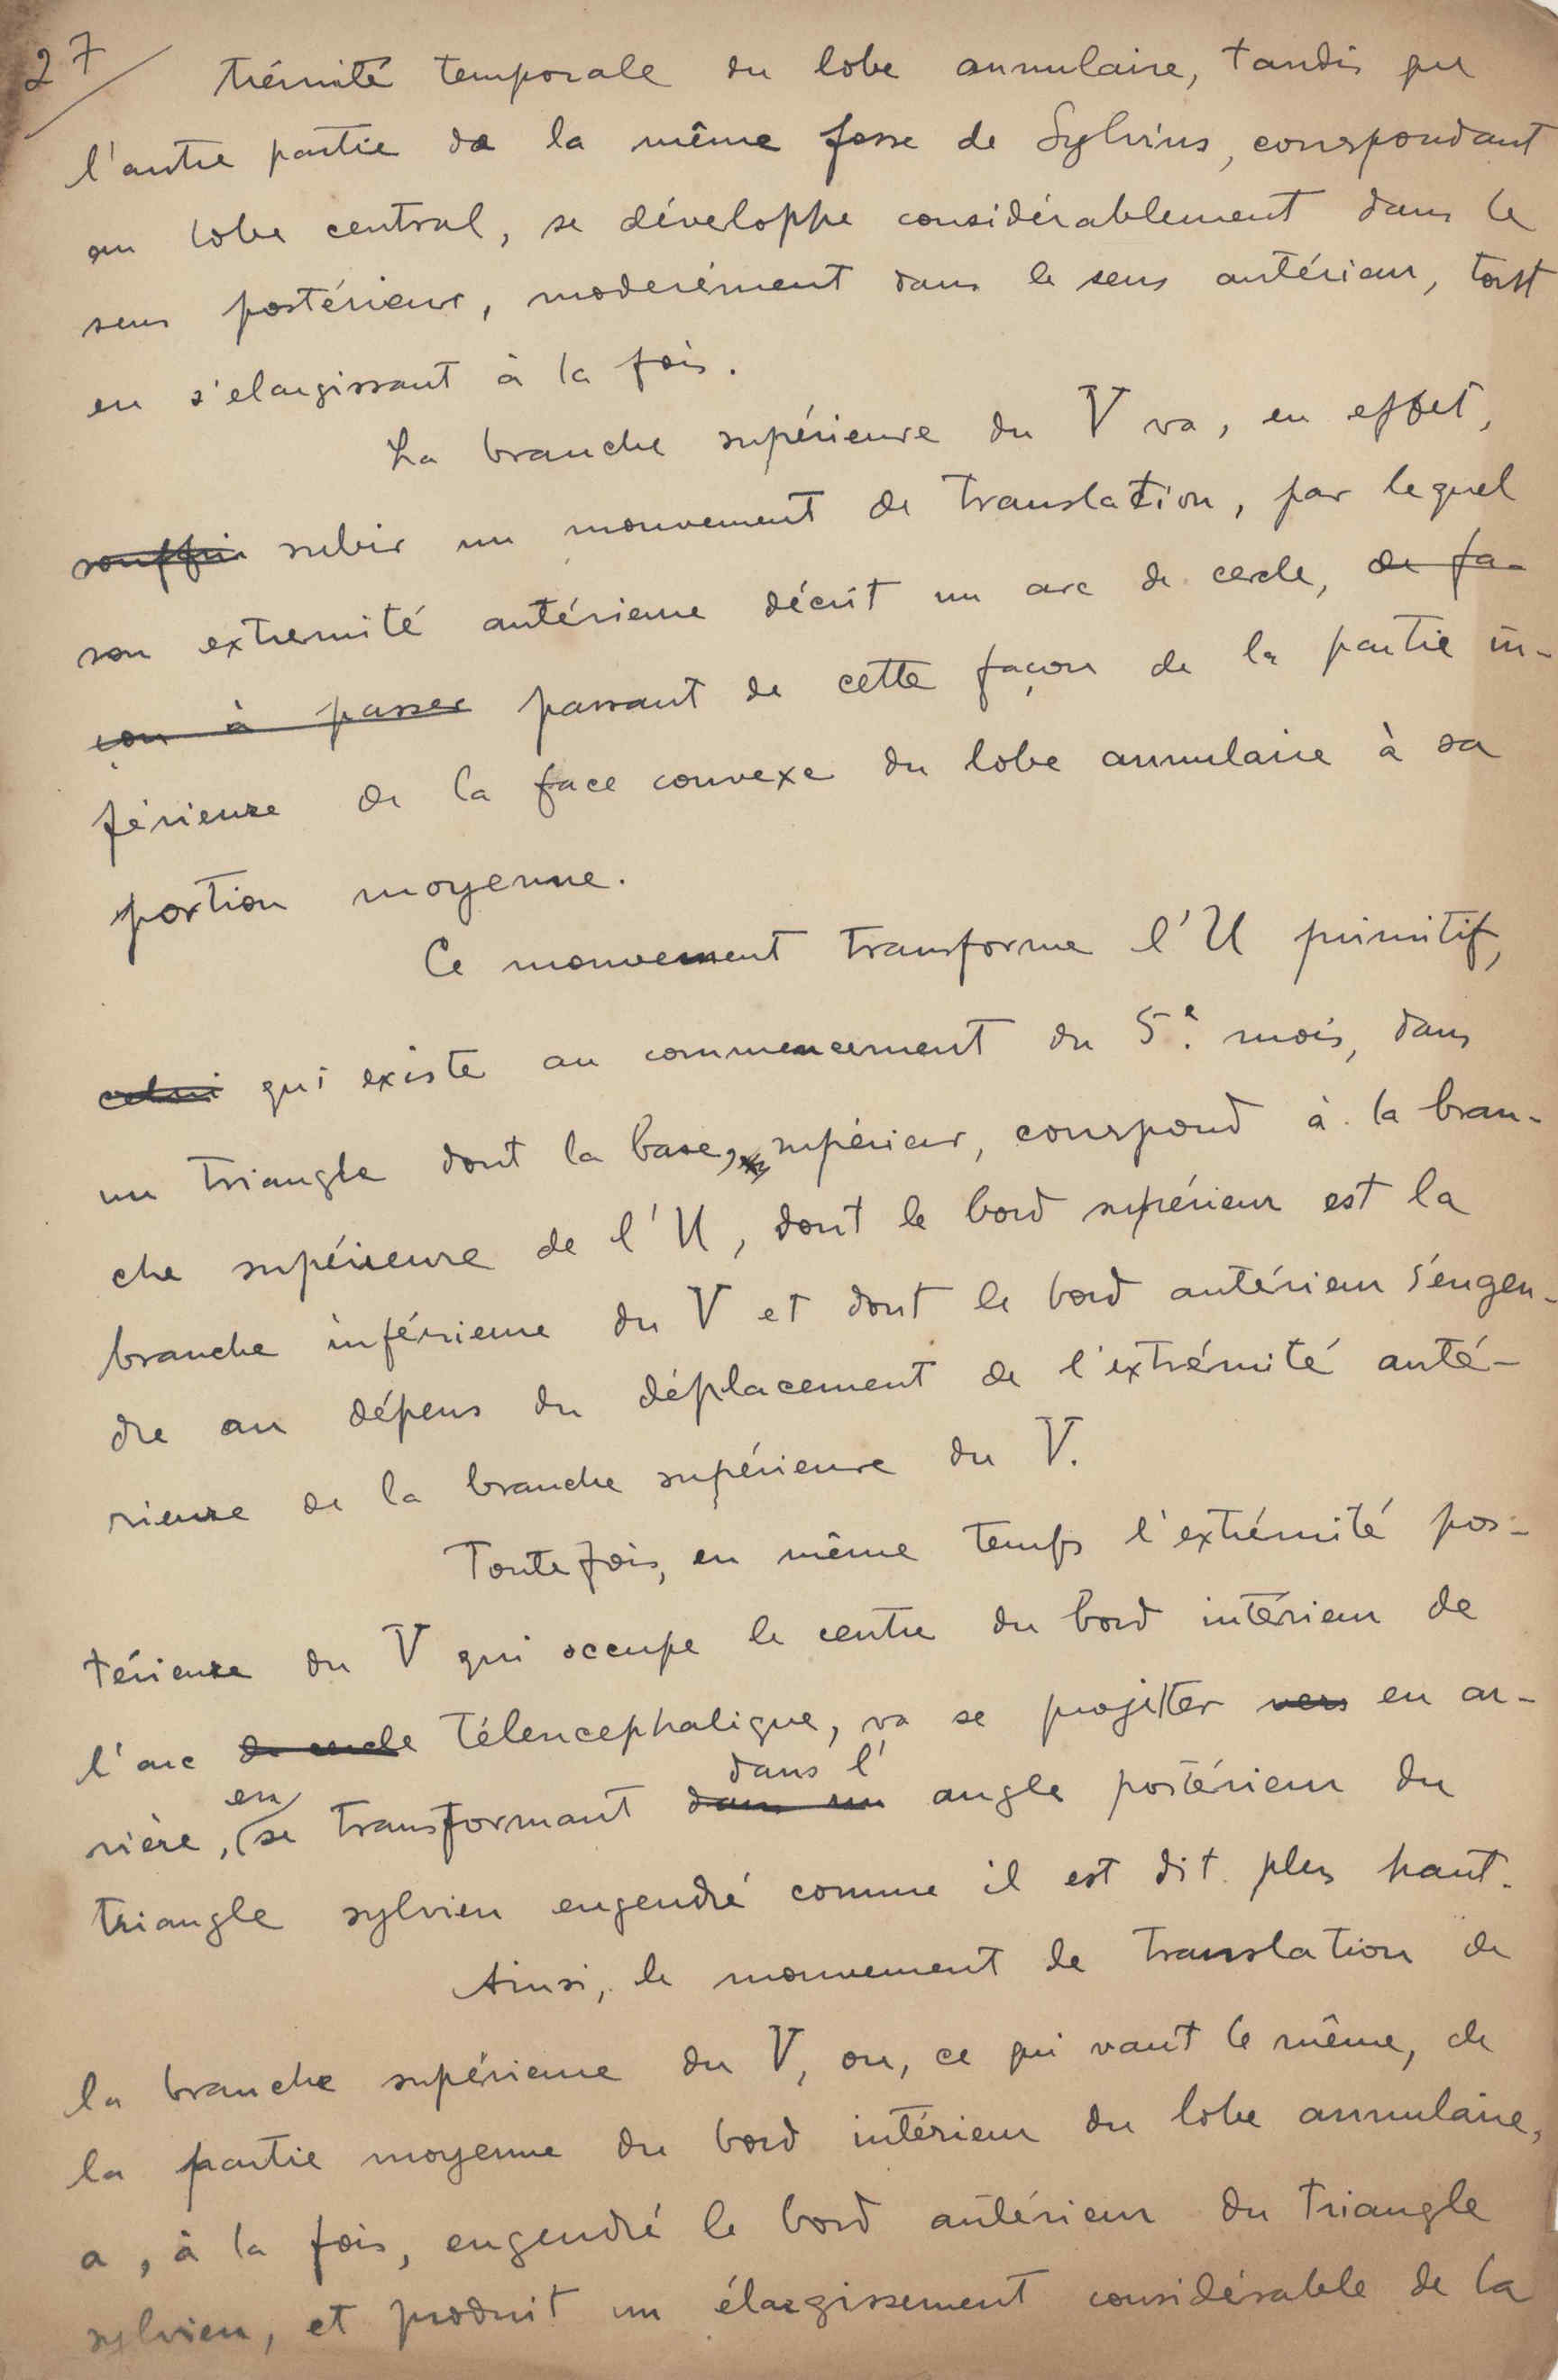 27
trémité temporale du lobe annulaire, tandis que
l'autre partie de la même fosse de Sylvius, correspondant
au lobe central, se développe considérablement dans le
sens postérieur, moderément dans le sens antérieur, tout
en s'elargissant à la fois.
La branche supérieure du V va, en effet,
souffrir subir un mouvement de translation, par lequel
son extremité antérieure décrit un arc de cercle, de fa-
çon à passer passant de cette façon de la partie in-
férieure de la face convexe du lobe annulaire à sa
portion moyenne.
Ce mouvement transforme l'U primitif,
celui qui existe au commencement du 5e mois, dans
un triangle dont la base, supérieur, correspond à la bran-
che supérieure de l'U, dont le bord supérieur est la
branche inférieure du V et dont le bord antérieur s'engen-
dre au dépens du déplacement de l'extrémité anté-
rieure de la branche supérieure du V.
Toutefois, en même temps l'extrémité pos-
térieure du V qui occupe le centre du bord intérieur de
l'arc de cercle télencephalique, va se projetter vers en ar-
dans l'
en
rière, se transformant dans un angle postérieur du
triangle sylvien engendré comme il est dit plus haut.
Ainsi, le mouvement de translation de
la branche supérieure du V, ou, ce qui vaut le même, de
la partie moyenne du bord intérieur du lobe annulaire,
a, à la fois, engendré le bord antérieur du triangle
sylvien, et produit un élargissement considérable de la